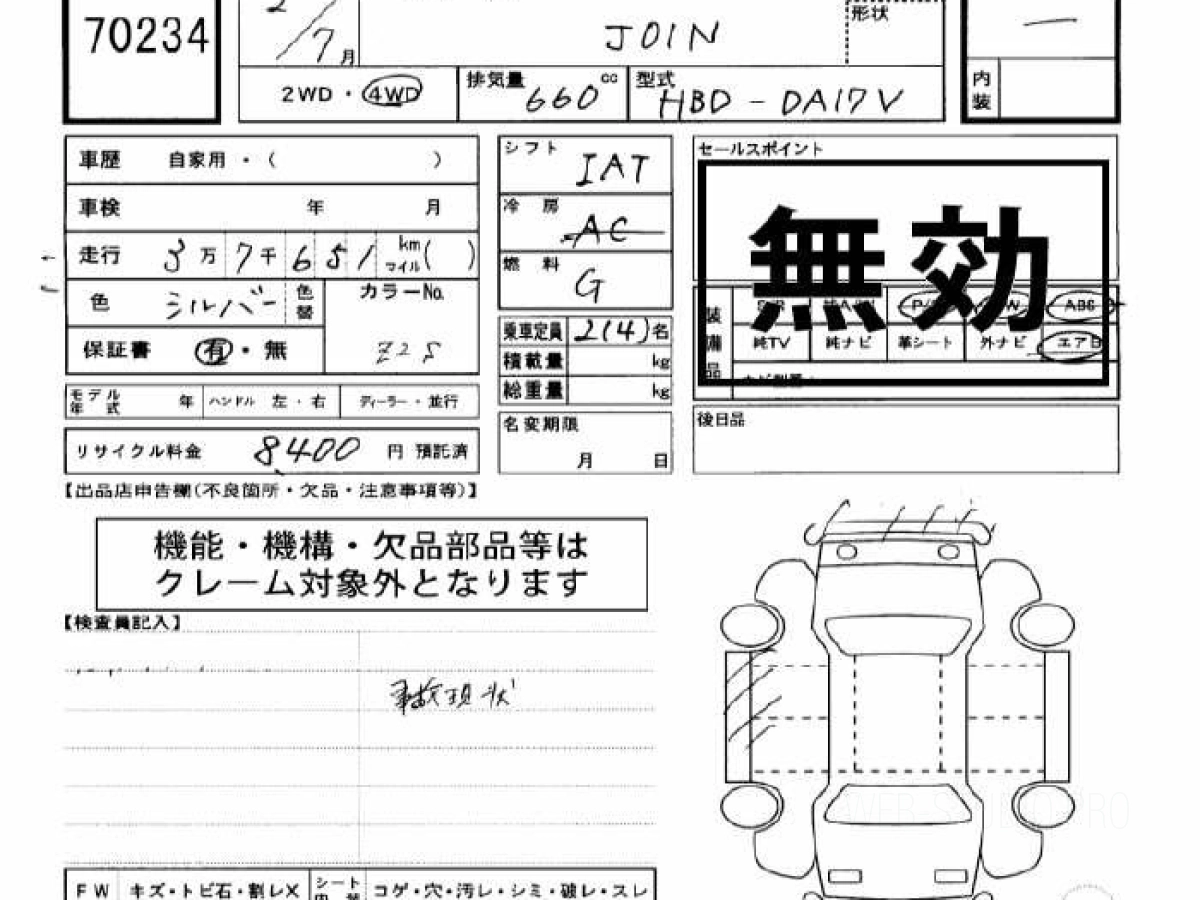 70234
7月
JOIN
形状
一
2WD・4WD
排気量 660 cc
型式 HBD-DA17V
内装
車歴 自家用・( )
シフト IAT
セールスポイント
車検 年 月
冷房 AC
無効
走行 3万7千651 km マイル( )
燃料 G
色 シルバー 色替
カラーNo. Z2S
P/S
ABS
保証書 有・無
乗車定員 2(4)名
装備品
純TV 純ナビ 革シート 外ナビ エアB
積載量 kg
総重量 kg
モデル年式 年 ハンドル 左・右 ディーラー・並行
名変期限
月 日
後日品
リサイクル料金 8,400 円 預託済
【出品店申告欄(不良箇所・欠品・注意事項等)】
機能・機構・欠品部品等は
クレーム対象外となります
【検査員記入】
事故現状
FW キズ・トビ石・割レX シート コゲ・穴・汚レ・シミ・破レ・スレ